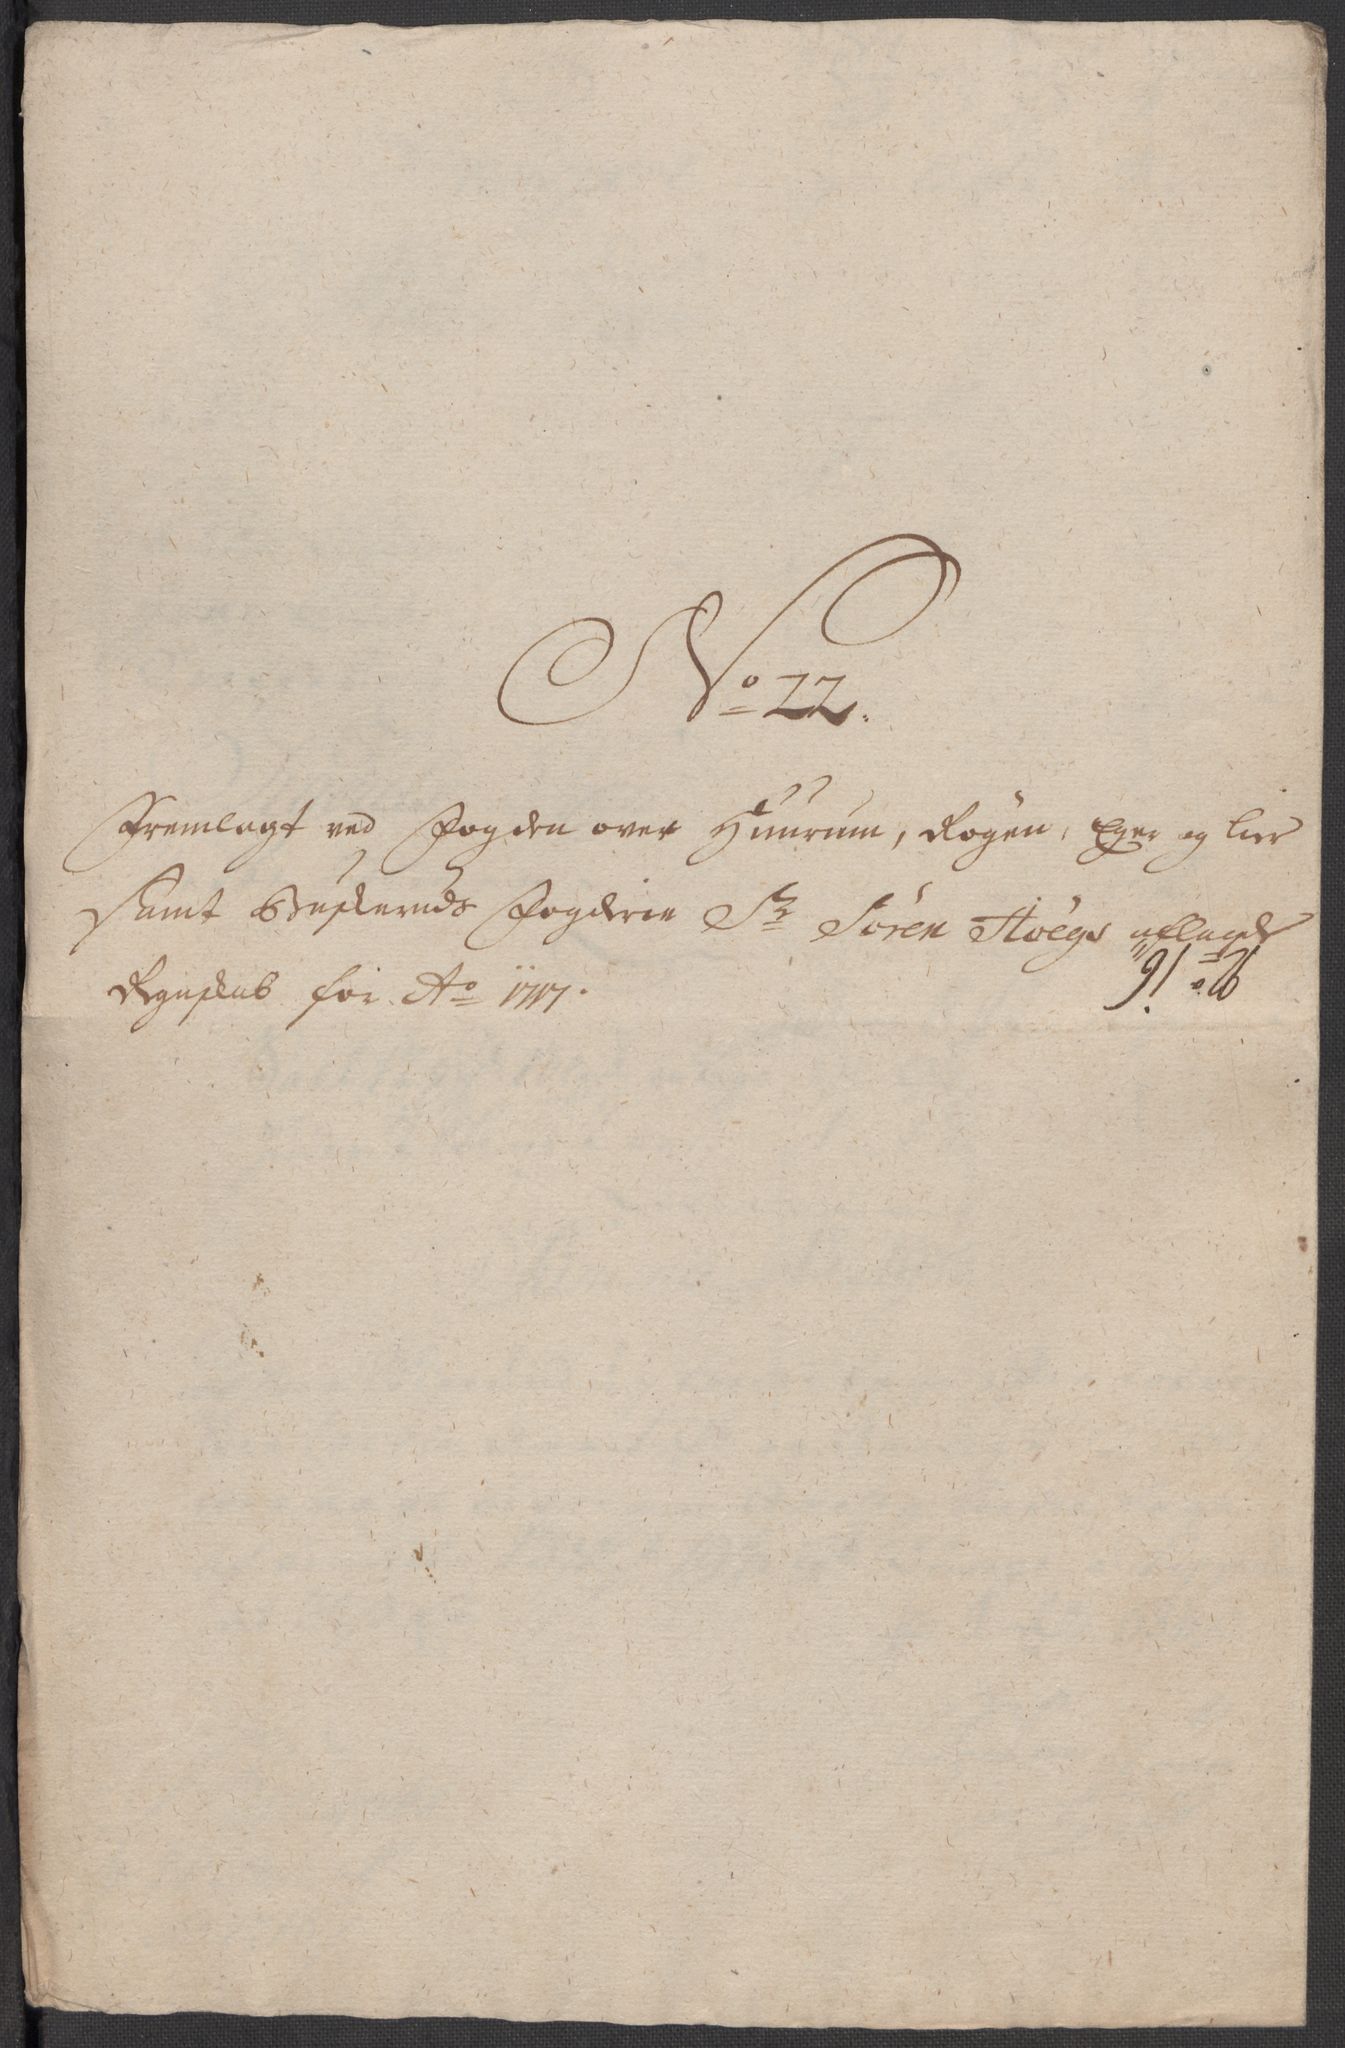 No 22.
Fremlagt ved Fogden over Huurum, Røgen, Eger og Lier
Samt Buskeruds Fogderie Sr Sören Höegs aflagde
Regnskab for Ao 1717.